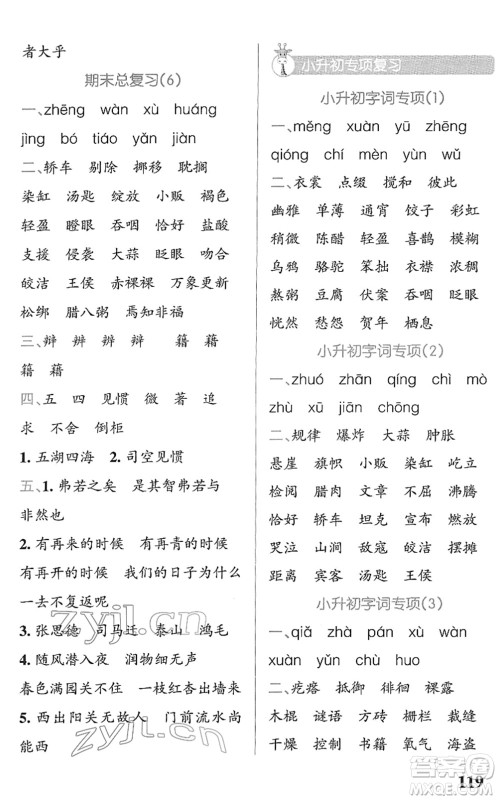 者大乎
期末总复习(6)
一、zhēng wàn xù huáng
jìng bó tiáo yǎn jiàn
二、轿车 剔除 挪移 耽搁
染缸 汤匙 绽放 小贩 褐色
轻盈 瞪眼 吞咽 恰好 盐酸
支援 侵袭 大蒜 眨眼 吻合
皎洁 王侯 赤裸裸 万象更新
松绑 腊八粥 焉知非福
三、辩 辨 辫 籍 藉
籍 藉
四、五 四 见惯 微 著 追
求 不舍 倒柜
1. 五湖四海 2. 司空见惯
五、1. 弗若之矣 是其智弗若与
非然也
2. 有再来的时候 有再青的时候
有再开的时候 我们的日子为什么
一去不复返呢
3. 张思德 司马迁 泰山 鸿毛
4. 随风潜入夜 润物细无声
春色满园关不住 一枝红杏出墙来
5. 西出阳关无故人 门前流水尚
能西
小升初专项复习
小升初字词专项(1)
一、měng xuàn yū zhēng
qióng chí mèn yùn wǔ
二、衣裳 点缀 搅和 彼此
幽雅 单薄 通宵 饺子 彩虹
稍微 陈醋 轻盈 喜鹊 模糊
乌鸦 骆驼 笨拙 衣襟 浓稠
熬粥 豆腐 伏案 吞咽 眨眼
恍然 愁怨 贺年 栖息
小升初字词专项(2)
一、zhuó zhān qíng chì mò
zhù xū jiān chōng
二、规律 爆炸 大蒜 肿胀
悬崖 旗帜 小贩 染缸 屹立
检阅 腊肉 文章 不屈 沸腾
恰好 轿车 坦克 宣布 魔爪
哭泣 山岭 蔚蓝 皎洁 摆摊
距离 宾客 汤匙 王侯
小升初字词专项(3)
一、qiǎ zhà pán xù wàn
xuān yǔn chù huo
二、疙瘩 抵御 徘徊 裸露
木棍 谜语 方砖 栅栏 裁缝
干燥 操控 书籍 氧气 海盗
119
zyjl.cn
zyjl.cn
答案圈